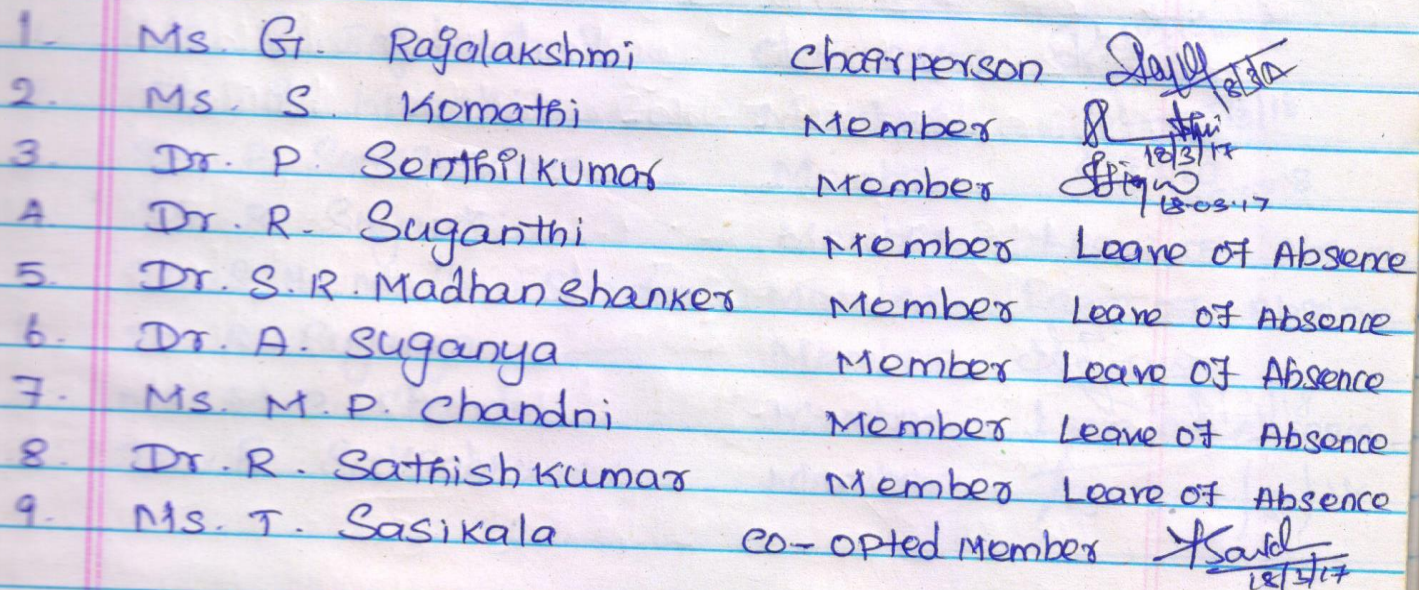 1. Ms. G. Rajalakshmi Chairperson 18/3/17
2. Ms. S. Komathi Member 18/3/17
3. Dr. P. Senthilkumar Member 18.03.17
4. Dr. R. Suganthi Member Leave of Absence
5. Dr. S.R. Madhan Shanker Member Leave of Absence
6. Dr. A. Suganya Member Leave of Absence
7. Ms. M.P. Chandni Member Leave of Absence
8. Dr. R. Sathish Kumar Member Leave of Absence
9. Ms. T. Sasikala co-opted Member 18/3/17